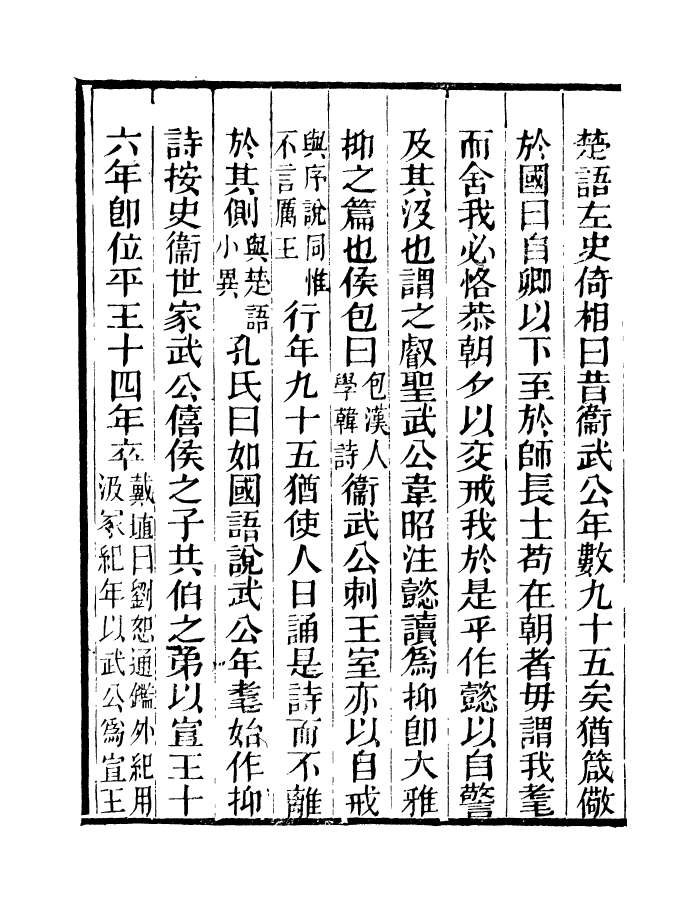 楚語左史倚相曰昔衞武公年數九十五矣猶箴儆
於國曰自卿以下至於師長士苟在朝者毋謂我耄
而舍我必恪恭朝夕以交戒我於是乎作懿以自警
及其沒也謂之叡聖武公韋昭注懿讀爲抑卽大雅
抑之篇也侯包曰包漢人學韓詩衞武公刺王室亦以自戒
與序說同惟不言厲王行年九十五猶使人日誦是詩而不離
於其側與楚語小異孔氏曰如國語說武公年耄始作抑
詩按史衞世家武公僖侯之子共伯之弟以宣王十
六年卽位平王十四年卒戴埴曰劉恕通鑑外紀用汲冢紀年以武公爲宣王